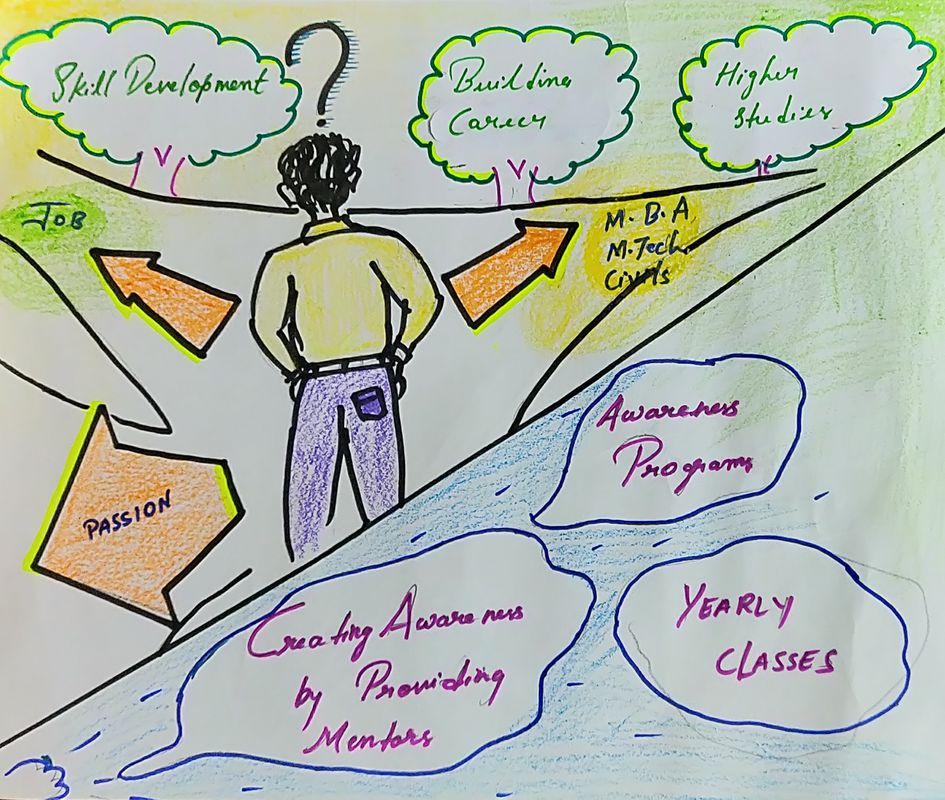 ?
Skill Development
Building
Career
Higher
Studies
JOB
M.B.A
M.Tech
Civils
PASSION
Awareness
Programs
Creating Awareness
by Providing
Mentors
YEARLY
CLASSES